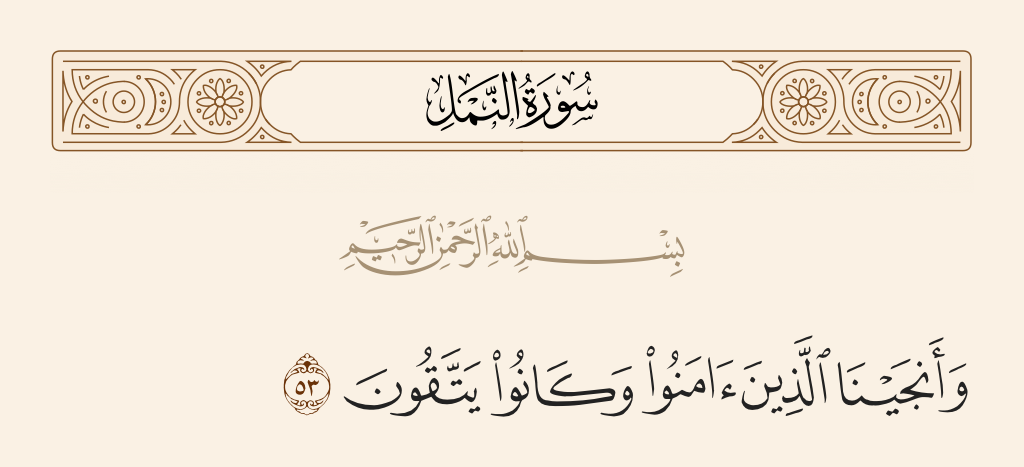 سُورَةُ النَّمْلِ
بِسْمِ ٱللَّهِ ٱلرَّحْمَٰنِ ٱلرَّحِيمِ
وَأَنجَيْنَا ٱلَّذِينَ ءَامَنُوا۟ وَكَانُوا۟ يَتَّقُونَ ٥٣